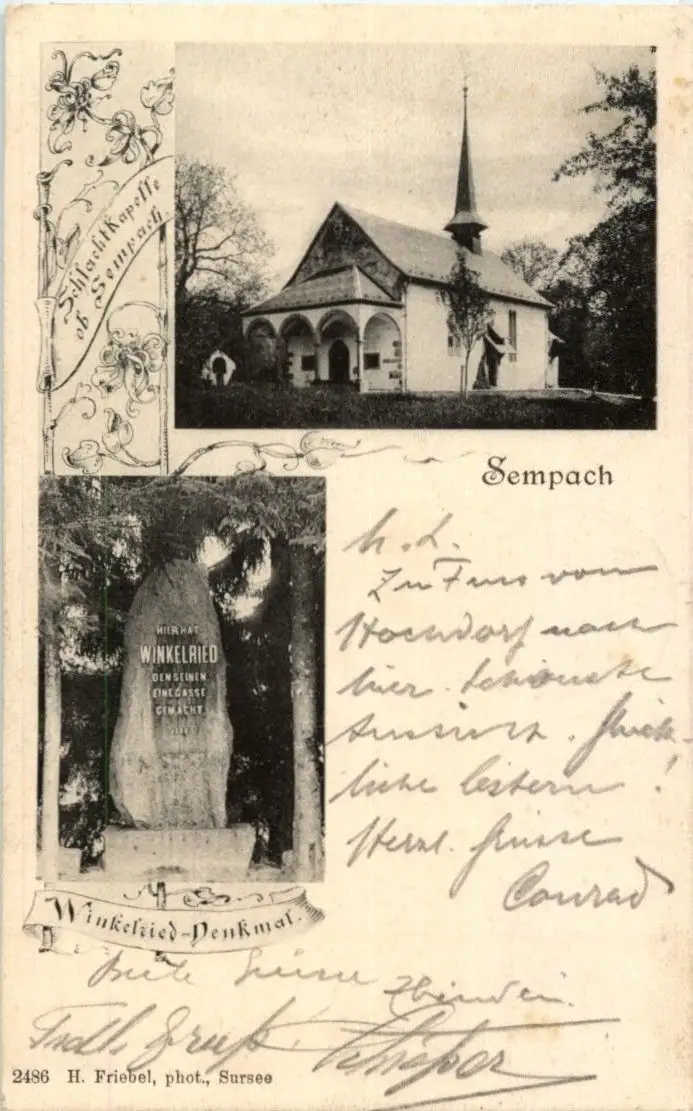 Schlachtkapelle
ob Sempach
Sempach
HIER HAT
WINKELRIED
DEN SEINEN
EINE GASSE
GEMACHT
Zu Fuss von
Hochdorf nach
hier. Schönste
Aussicht. Glück-
liche Ostern!
Herzl. Grüsse
Conrad
Winkelried-Denkmal.
Beste Grüsse
Gruß
2486 H. Friebel, phot., Sursee